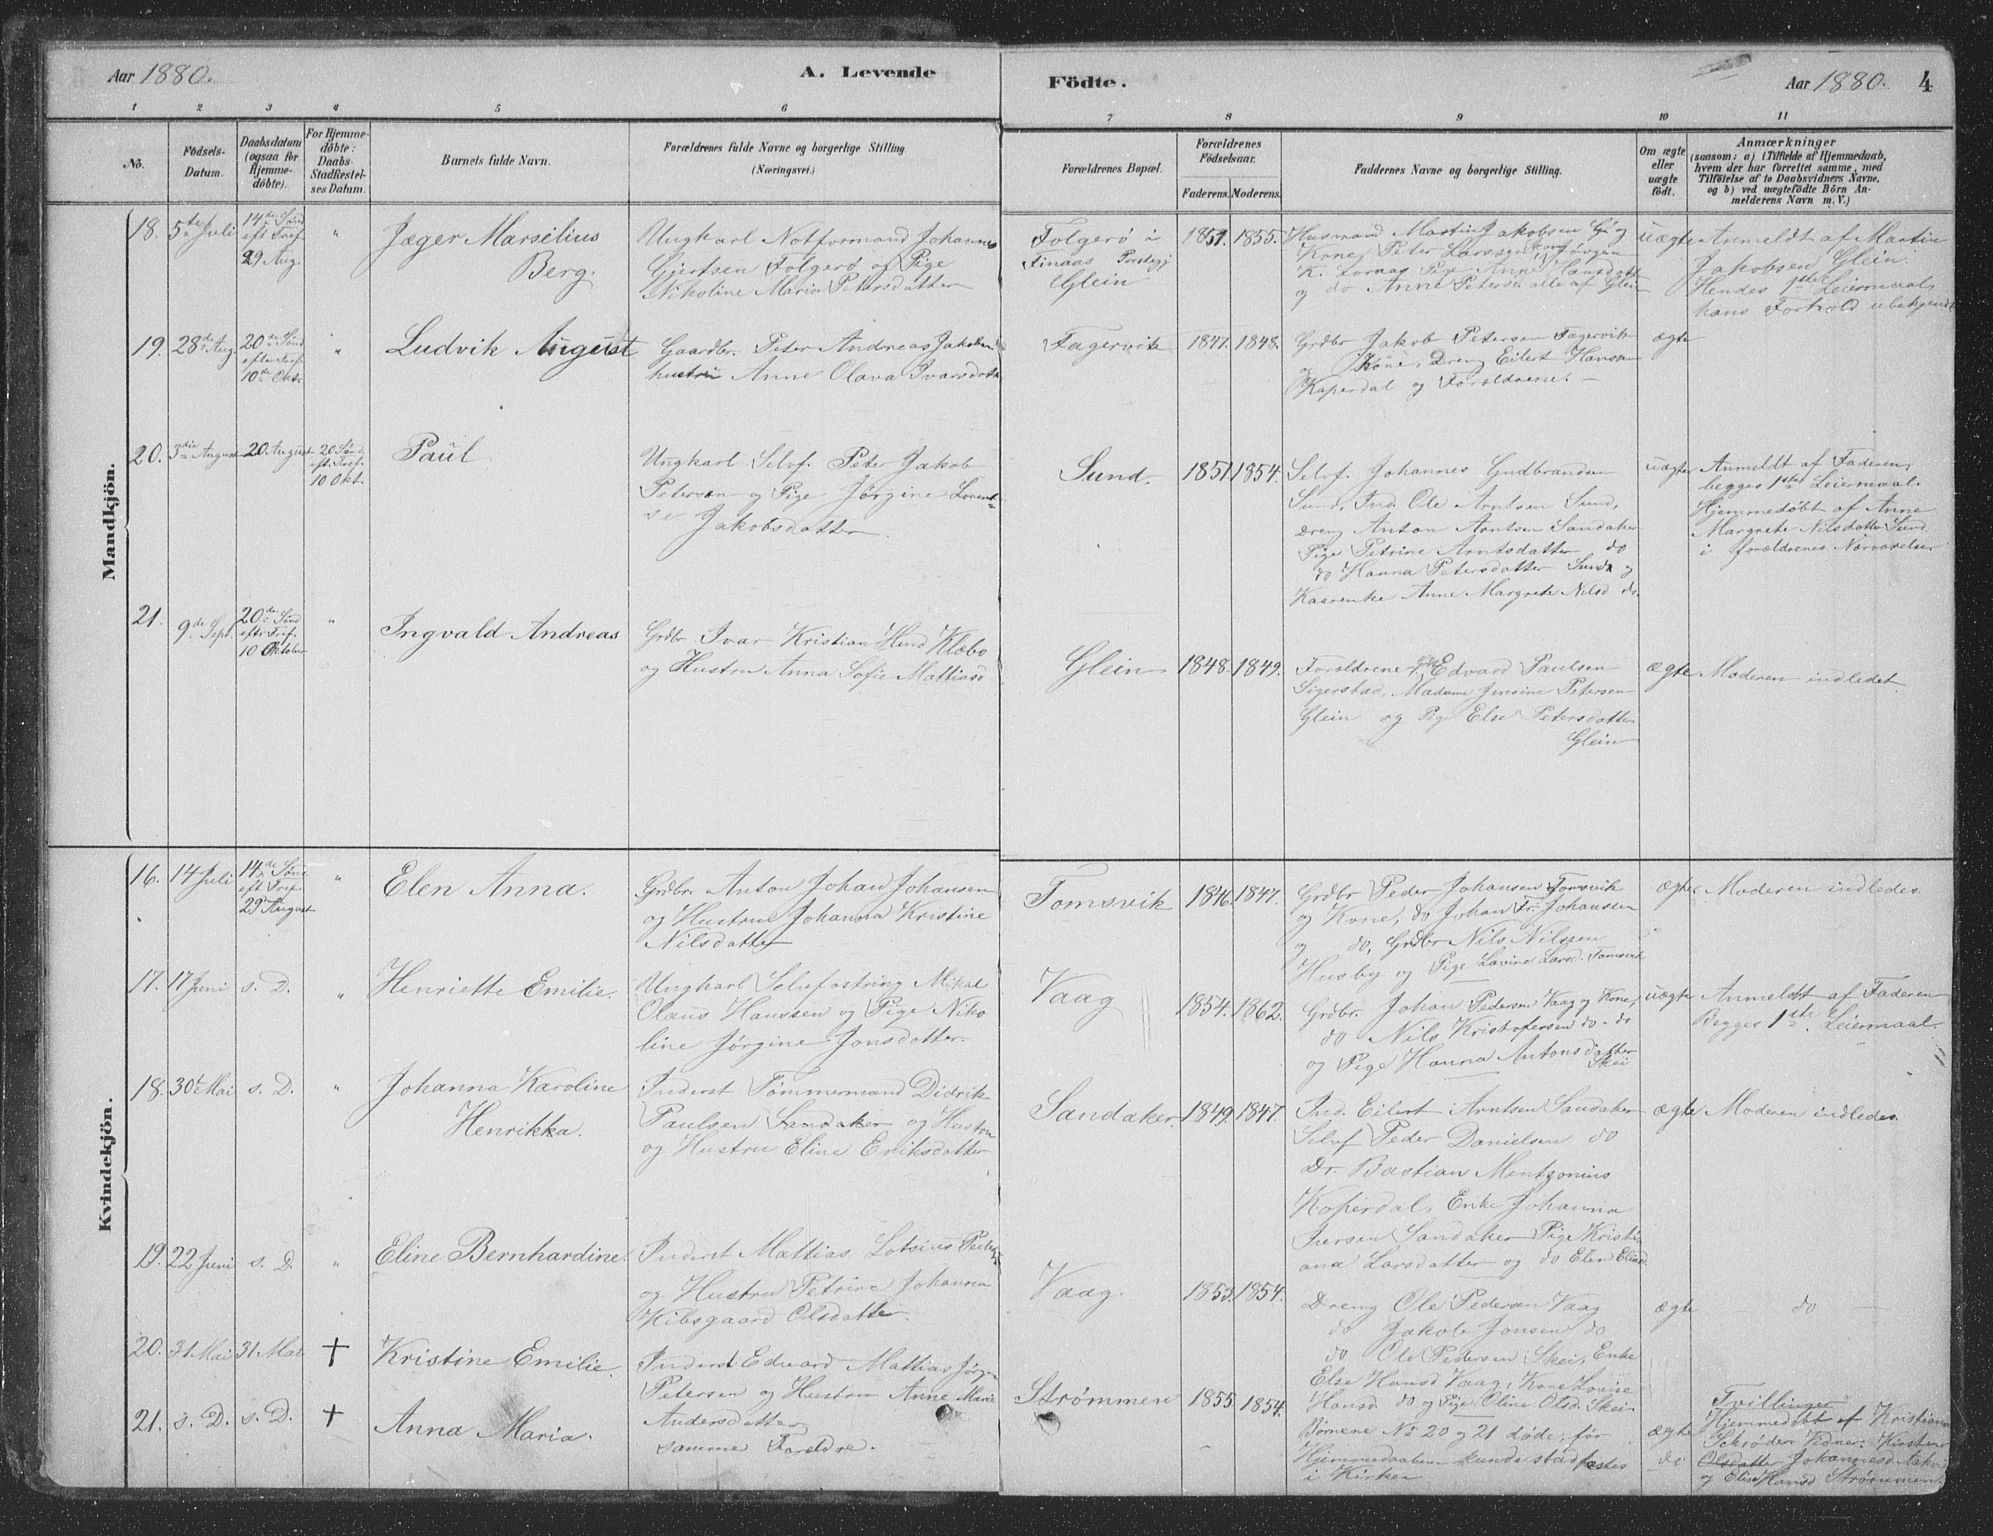 Aar 1880.
A. Levende
Födte.
Aar 1880. 4
1 2 3 4 5 6 7 8 9 10 11
No.
Födsels-Datum.
Daabsdatum (ogsaa for Hjemme-döbte).
For Hjemme-döbte: Daabs-Stadfæstel-ses Datum.
Barnets fulde Navn.
Forældrenes fulde Navne og borgerlige Stilling. (Næringsvei.)
Forældrenes Bopæl.
Forældrenes Födselsaar.
Faderens. Moderens.
Faddernes Navne og borgerlige Stilling.
Om ægte eller uægte födt.
Anmærkninger
(saasom: a) i Tilfælde af Hjemmedaab,
hvem der har forrettet samme, med
Tilföielse af to Daabsvidners Navne,
og b) ved uægtefödte Börn An-
melderens Navn m. V.)
Mandkjön.
18. 5te Juli
14de Sønd
eft Tref.
29 Aug.
"
Jæger Marselius
Berg.
Ungkarl Notformand Johannes
Gjertsen Folgerø og Pige
Nikoline Maria Petersdatter
Folgerø i
Finaas Prstegj
Glein
1851. 1855.
Husmand Martin Jakobsen Gl. og
Kone, Peter Larssen, Jørgen
og do Anne Peters. alle af Glein
uægte
Anmeldt af Martin
Jakobsen Glein.
Hendes 1ste Leiermaal,
hans Forhold ubekjendt
19. 28de Aug.
20de Sønd
efter Tref.
10de Oktr
"
Ludvik August
Gaardbr. Peter Andreas Jakobsen
hustru Anne Olava Ivarsdatt
Fagervik
1847. 1848.
Grdbr Jakob Petersen Fagervik
og Kone, Dreng Eilert Hansen
Kaperdal og Forældrene. —
ægte
20. 3die August
20 August
20 Sønd.
eft. Tref.
10 Okt.
Paul
Ungkarl Selvf. Peter Jakob
Petersen og Pige Jørgine Lorent-
se Jakobsdatter.
Sund.
1851. 1854.
Selvf. Johannes Gudbrandsen
Sund, Ind. Ole Arntsen Sund,
Dreng Anton Arntsen Sandaker
Pige Petrine Arntsdatter do
do Hanna Petersdatter Sund og
Kaarenke Anne Margrete Nilsd do.
uægte
Anmeldt af Faderen,
begges 1ste Leiermaal.
Hjemmedøbt af Anne
Margrete Nilsdatter Sund
i forældrenes Nærværelse.
21. 9de Sept.
20de Sønd
eftr Tref.
10 Oktober
"
Ingvald Andreas
Grdbr Ivar Kristian Hind Klæbo
og Hustru Anna Sofie Mattiasd
Glein
1848. 1849.
Forældrene, Edvard Paulsen
Sigerstad, Madame Jensine Petersen
Glein og Pige Else Petersdatter
Glein
ægte
Moderen indledet.
Kvindekjön.
16. 14 Juli
14de Sønd
eft Tref.
29 August
"
Elen Anna.
Grdbr. Anton Johan Johansen
og Hustru Johanna Kristine
Nilsdatter
Tomsvik
1846. 1847.
Grdbr Peder Johansen Tomsvik
og Kone, do Johan Fr. Johanssen
og do, Grdbr Nils Nilssen
Husby og Pige Lavine Larsd. Tomsvik
ægte
Moderen indledes.
17. 17 Juni
s. D.
"
Henriette Emilie.
Ungkarl Selvfostring Mikal
Olaus Hanssen og Pige Niko
line Jørgine Jonsdatter.
Vaag
1854. 1862.
Grdbr. Johan Pedersen Vaag og Kone,
do Nils Kristofersen do - do
og Pige Hanna Antonsdatter
Skei
uægte
Anmeldt af Faderen
Begges 1ste Leiermaal.
18. 30te Mai
s. D.
"
Johanna Karoline
Henrikka.
Inderst Tømmermand Didrik
Paulsen Sandaker og Hustru
og Hustru Eline Eriksdatter
Sandaker.
1849. 1847.
Ind. Eilert Arntsen Sandaker
Selvf Peder Danielsen do
Dr. Bastian Mentzonius
Koperdal, Enke Johanna
Iversen Sandaker Pige Kristi
ana Larsdatter og do Elen Eliasd.
ægte
Moderen indledes.
19. 22 Juni
s. D.
"
Eline Bernhardine.
Inderst Mattias Lotsius Peders.
og Hustru Petrine Johanna
Kibsgaard Olsdatter.
Vaag.
1853. 1854.
Dreng Ole Pedersen Vaag
do Jakob Jonsen do
do Ole Pedersen Skei, Enke
Else Hansd Vaag, Kone Lovise
Hansd do og Pige Oline Olsd. Skei.
ægte
do —
20. 31 Mai
31 Mai
+
Kristine Emilie.
Inderst Edvard Mattias Jørg-
Petersen og Hustru Anne Marie
Andersdatter
Strømmen
1855. 1854.
Børnene No 20 og 21 døde, før
Hjemmedaaben kunde stadfæstes
i Kirken
ægte
Tvillinger
Hjemmedøbt af Kristiana
21. s. D.
s. D.
+
Anna Maria.
samme Foreldre.
do
og Elise Hansd Strømmen